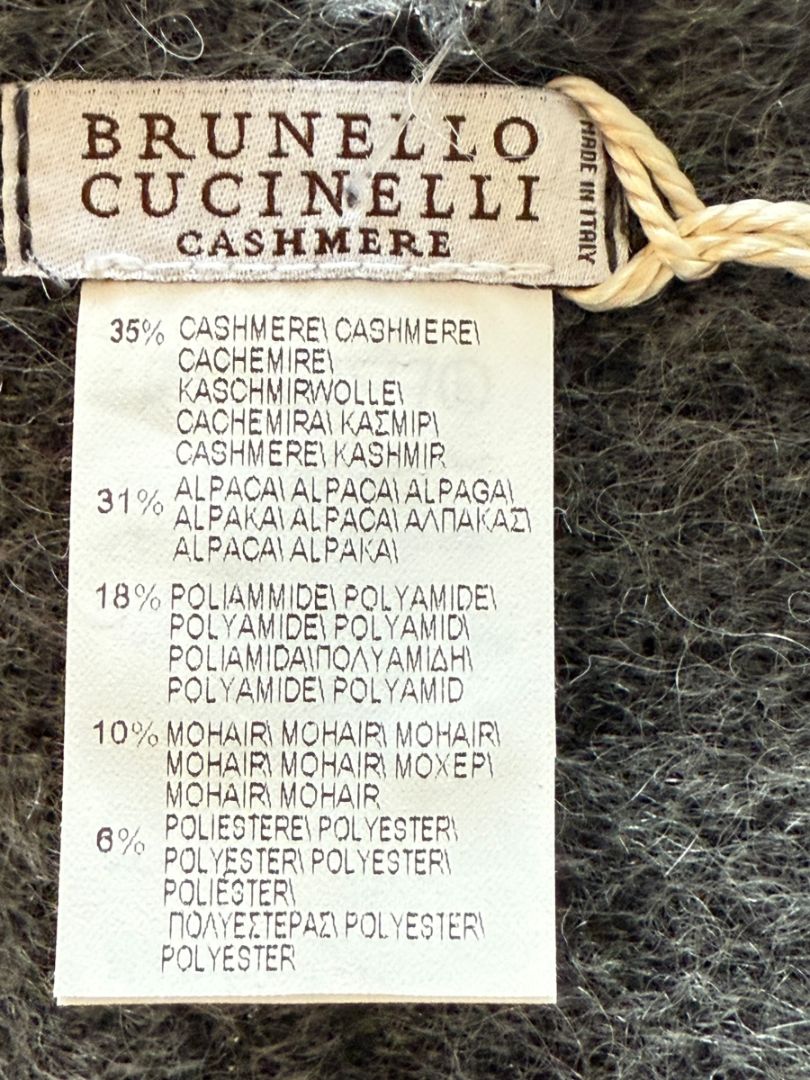 BRUNELLO
CUCINELLI
CASHMERE
MADE IN ITALY
35% CASHMERE\ CASHMERE\
CACHEMIRE\
KASCHMIRWOLLE\
CACHEMIRA\ ΚΑΣΜΙΡ\
CASHMERE\ KASHMIR
31% ALPACA\ ALPACA\ ALPAGA\
ALPAKA\ ALPACA\ ΑΛΠΑΚΑΣ\
ALPACA\ ALPAKA\
18% POLIAMMIDE\ POLYAMIDE\
POLYAMIDE\ POLYAMID\
POLIAMIDA\ΠΟΛΥΑΜΙΔΗ\
POLYAMIDE\ POLYAMID
10% MOHAIR\ MOHAIR\ MOHAIR\
MOHAIR\ MOHAIR\ ΜΟΧΕΡ\
MOHAIR\ MOHAIR
6% POLIESTERE\ POLYESTER\
POLYESTER\ POLYESTER\
POLIÉSTER\
ΠΟΛΥΕΣΤΕΡΑΣ\ POLYESTER\
POLYESTER